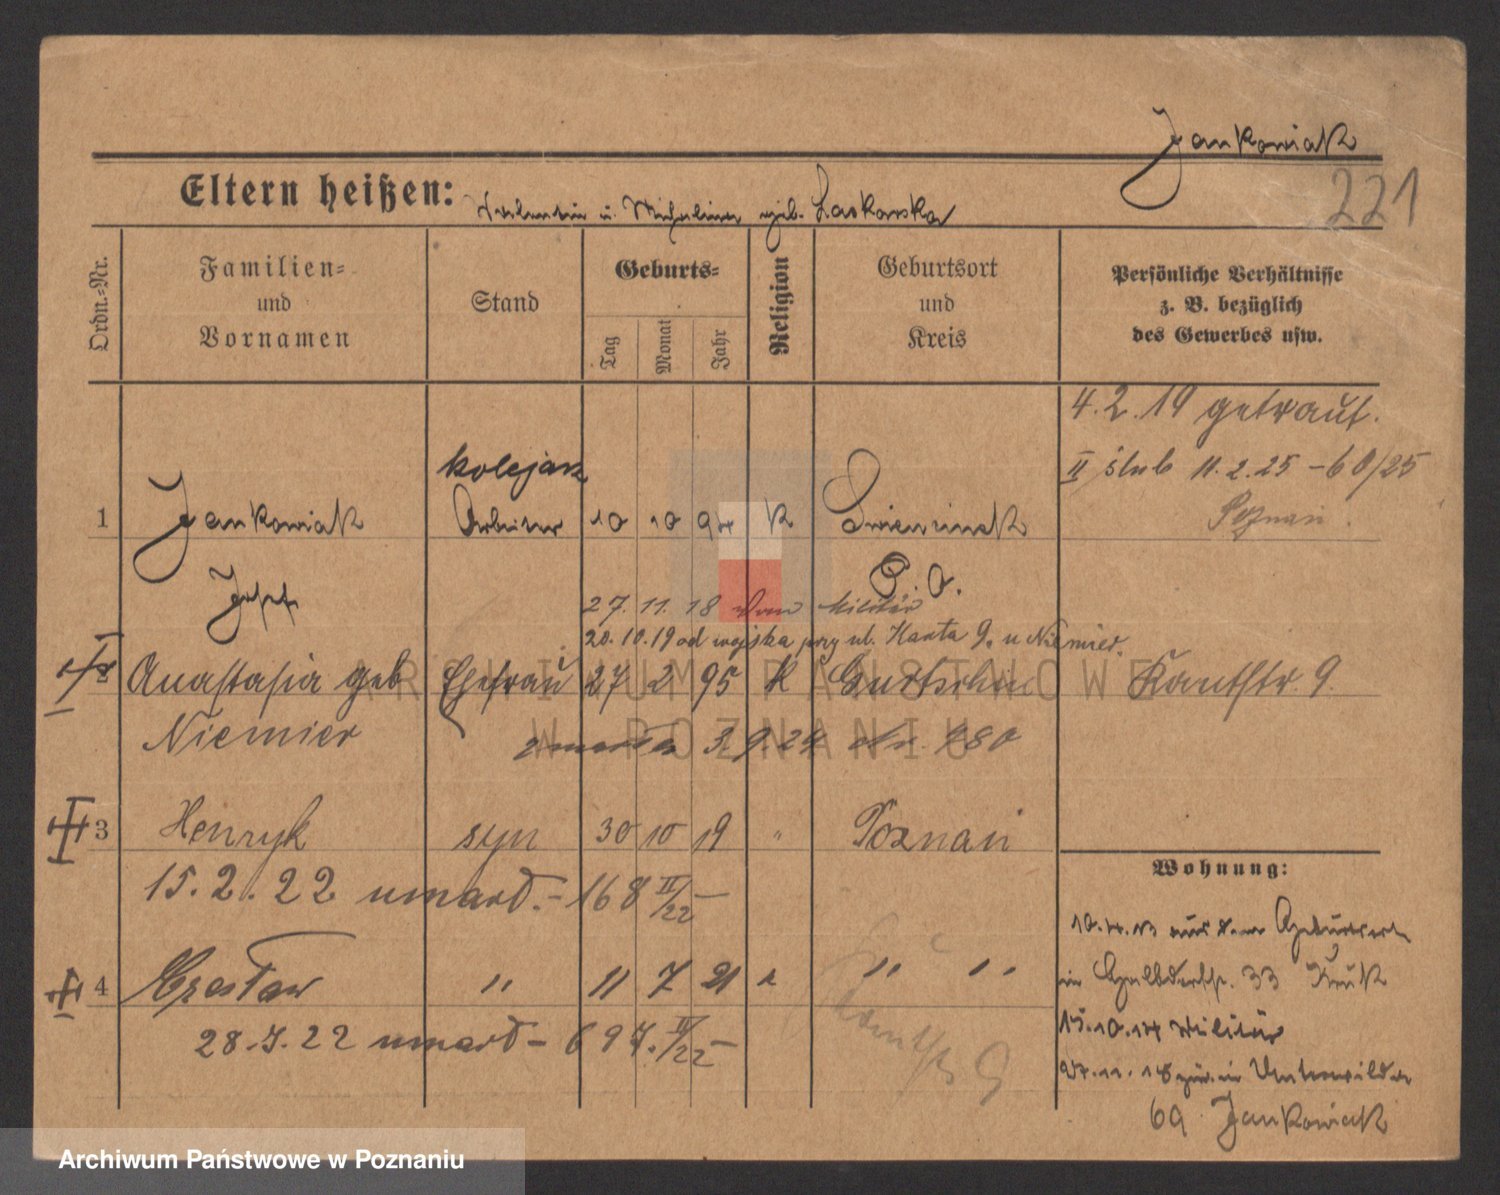 Jankowiak
221
Eltern heißen: Valentin u. Michalina geb. Laskowska
Ordn.-Nr.
Familien-
und
Vornamen
Stand
Geburts-
Tag
Monat
Jahr
Religion
Geburtsort
und
Kreis
Persönliche Verhältnisse
z. B. bezüglich
des Gewerbes usw.
4.2.19 getraut.
kolejarz
II ślub 11.2.25 - 60/25
Poznań.
1 Jankowiak Arbeiter 10 10 94 K
Josef
27. 11. 18 vom Militär
20.10.19 od wojska przy ul. Kanta 9. u Niemier.
Anastasia geb Ehefrau 27 2 95 K Gurtschin Kantstr. 9.
Niemier zmarła 3.9.24 480
3 Henryk syn 30 10 19 " Poznań
15.2.22 umarł.- 168 II/22 -
Wohnung:
10.4.13 aus dem Geburtsort
4 Czesław " 11 7 21 " "
in 33
15.10.14 Militär
28.7.22 umarł - 697. /22 -
Kantst 9
27.11.18 zur. in
69 Jankowiak
ARCHIWUM PAŃSTWOWE
W POZNANIU
Archiwum Państwowe w Poznaniu